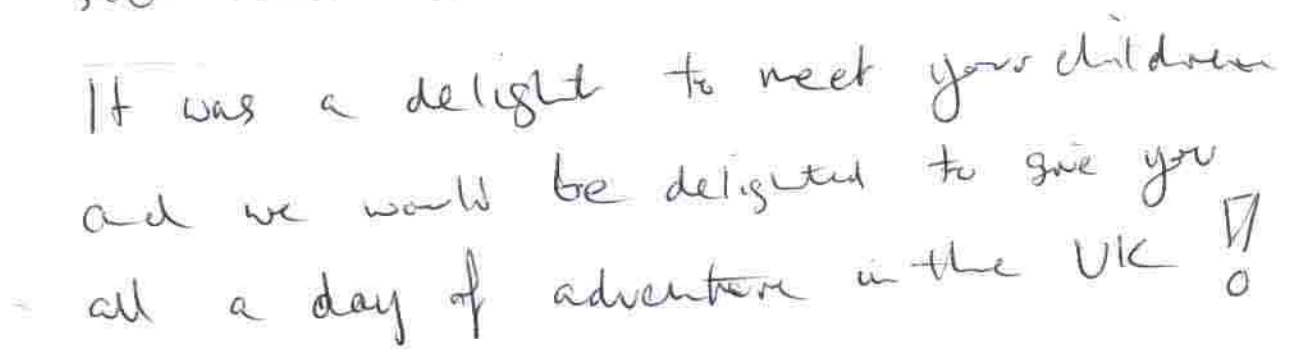 It was a delight to meet your children
and we would be delighted to give you
all a day of adventure in the UK !